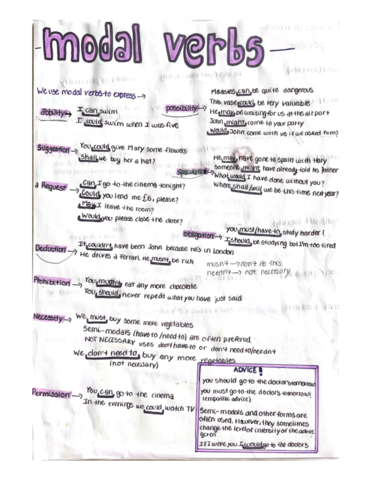 modal verbs
We use modal verbs to express →
Ability → I can swim
I could swim when I was five
possibility → Measles can be quite dangerous
This vase could be very valuable
He may be waiting for us at the airport
John might come to your party
Would John come with us if we asked him?
Suggestion → You could give Mary some flowers
Shall we buy her a hat?
Speculation → He may have gone to Spain with Mary
Someone might have already told his father
What would I have done without you?
Where shall/will we be this time next year?
a Request → Can I go to the cinema tonight?
Could you lend me £6, please?
May I leave the room?
Would you please close the door?
Obligation → you must/have to study harder
I should be studying but I'm too tired
Deduction → It couldn't have been John because he's in London
He drives a Ferrari. He must be rich
mustn't → don't do this
needn't → not necessary
Prohibition → You mustn't eat any more chocolate
You should never repeat what you have just said
Necessity → We must buy some more vegetables
Semi-modals (have to/need to) are often preferred
NOT NECESSARY uses don't have to or don't need to/needn't
We don't need to buy any more vegetables
(not necessary)
Permission → You can go to the cinema
In the evenings we could watch TV
ADVICE!
you should go to the doctors tomorrow
you must go to the doctors tomorrow!
(empathic advice)
Semi-modals and other forms are
often used. However, they sometimes
change the level or intensity of the advice
given
If I were you I would go to the doctors